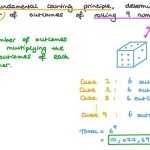 undamental counting principle, determin
of outcomes of rolling 9 num
umber of outcomes
multiplying the
outcomes of each
Cube 1 : 6 out
Cube 2 : 6 out
Cube 9 : 6 out
Total = 6⁹
= 10,077,69